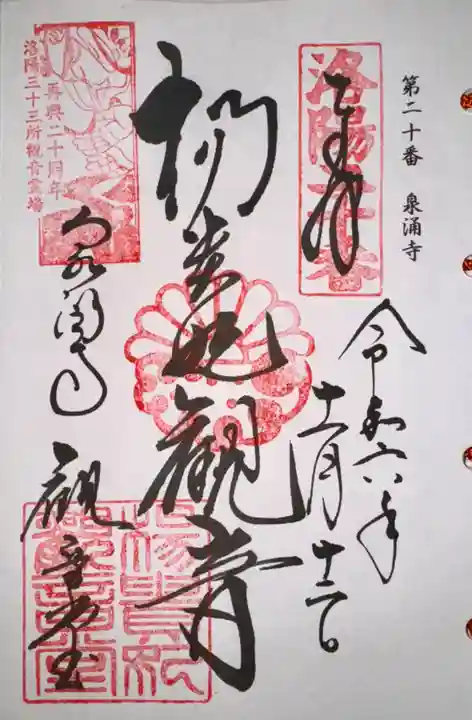 第二十番 泉涌寺
奉拝
洛陽二十番
令和六年
十一月十三日
楊貴妃観音
再興二十周年
洛陽三十三所観音霊場
泉涌寺
観音堂
楊貴妃
観音堂